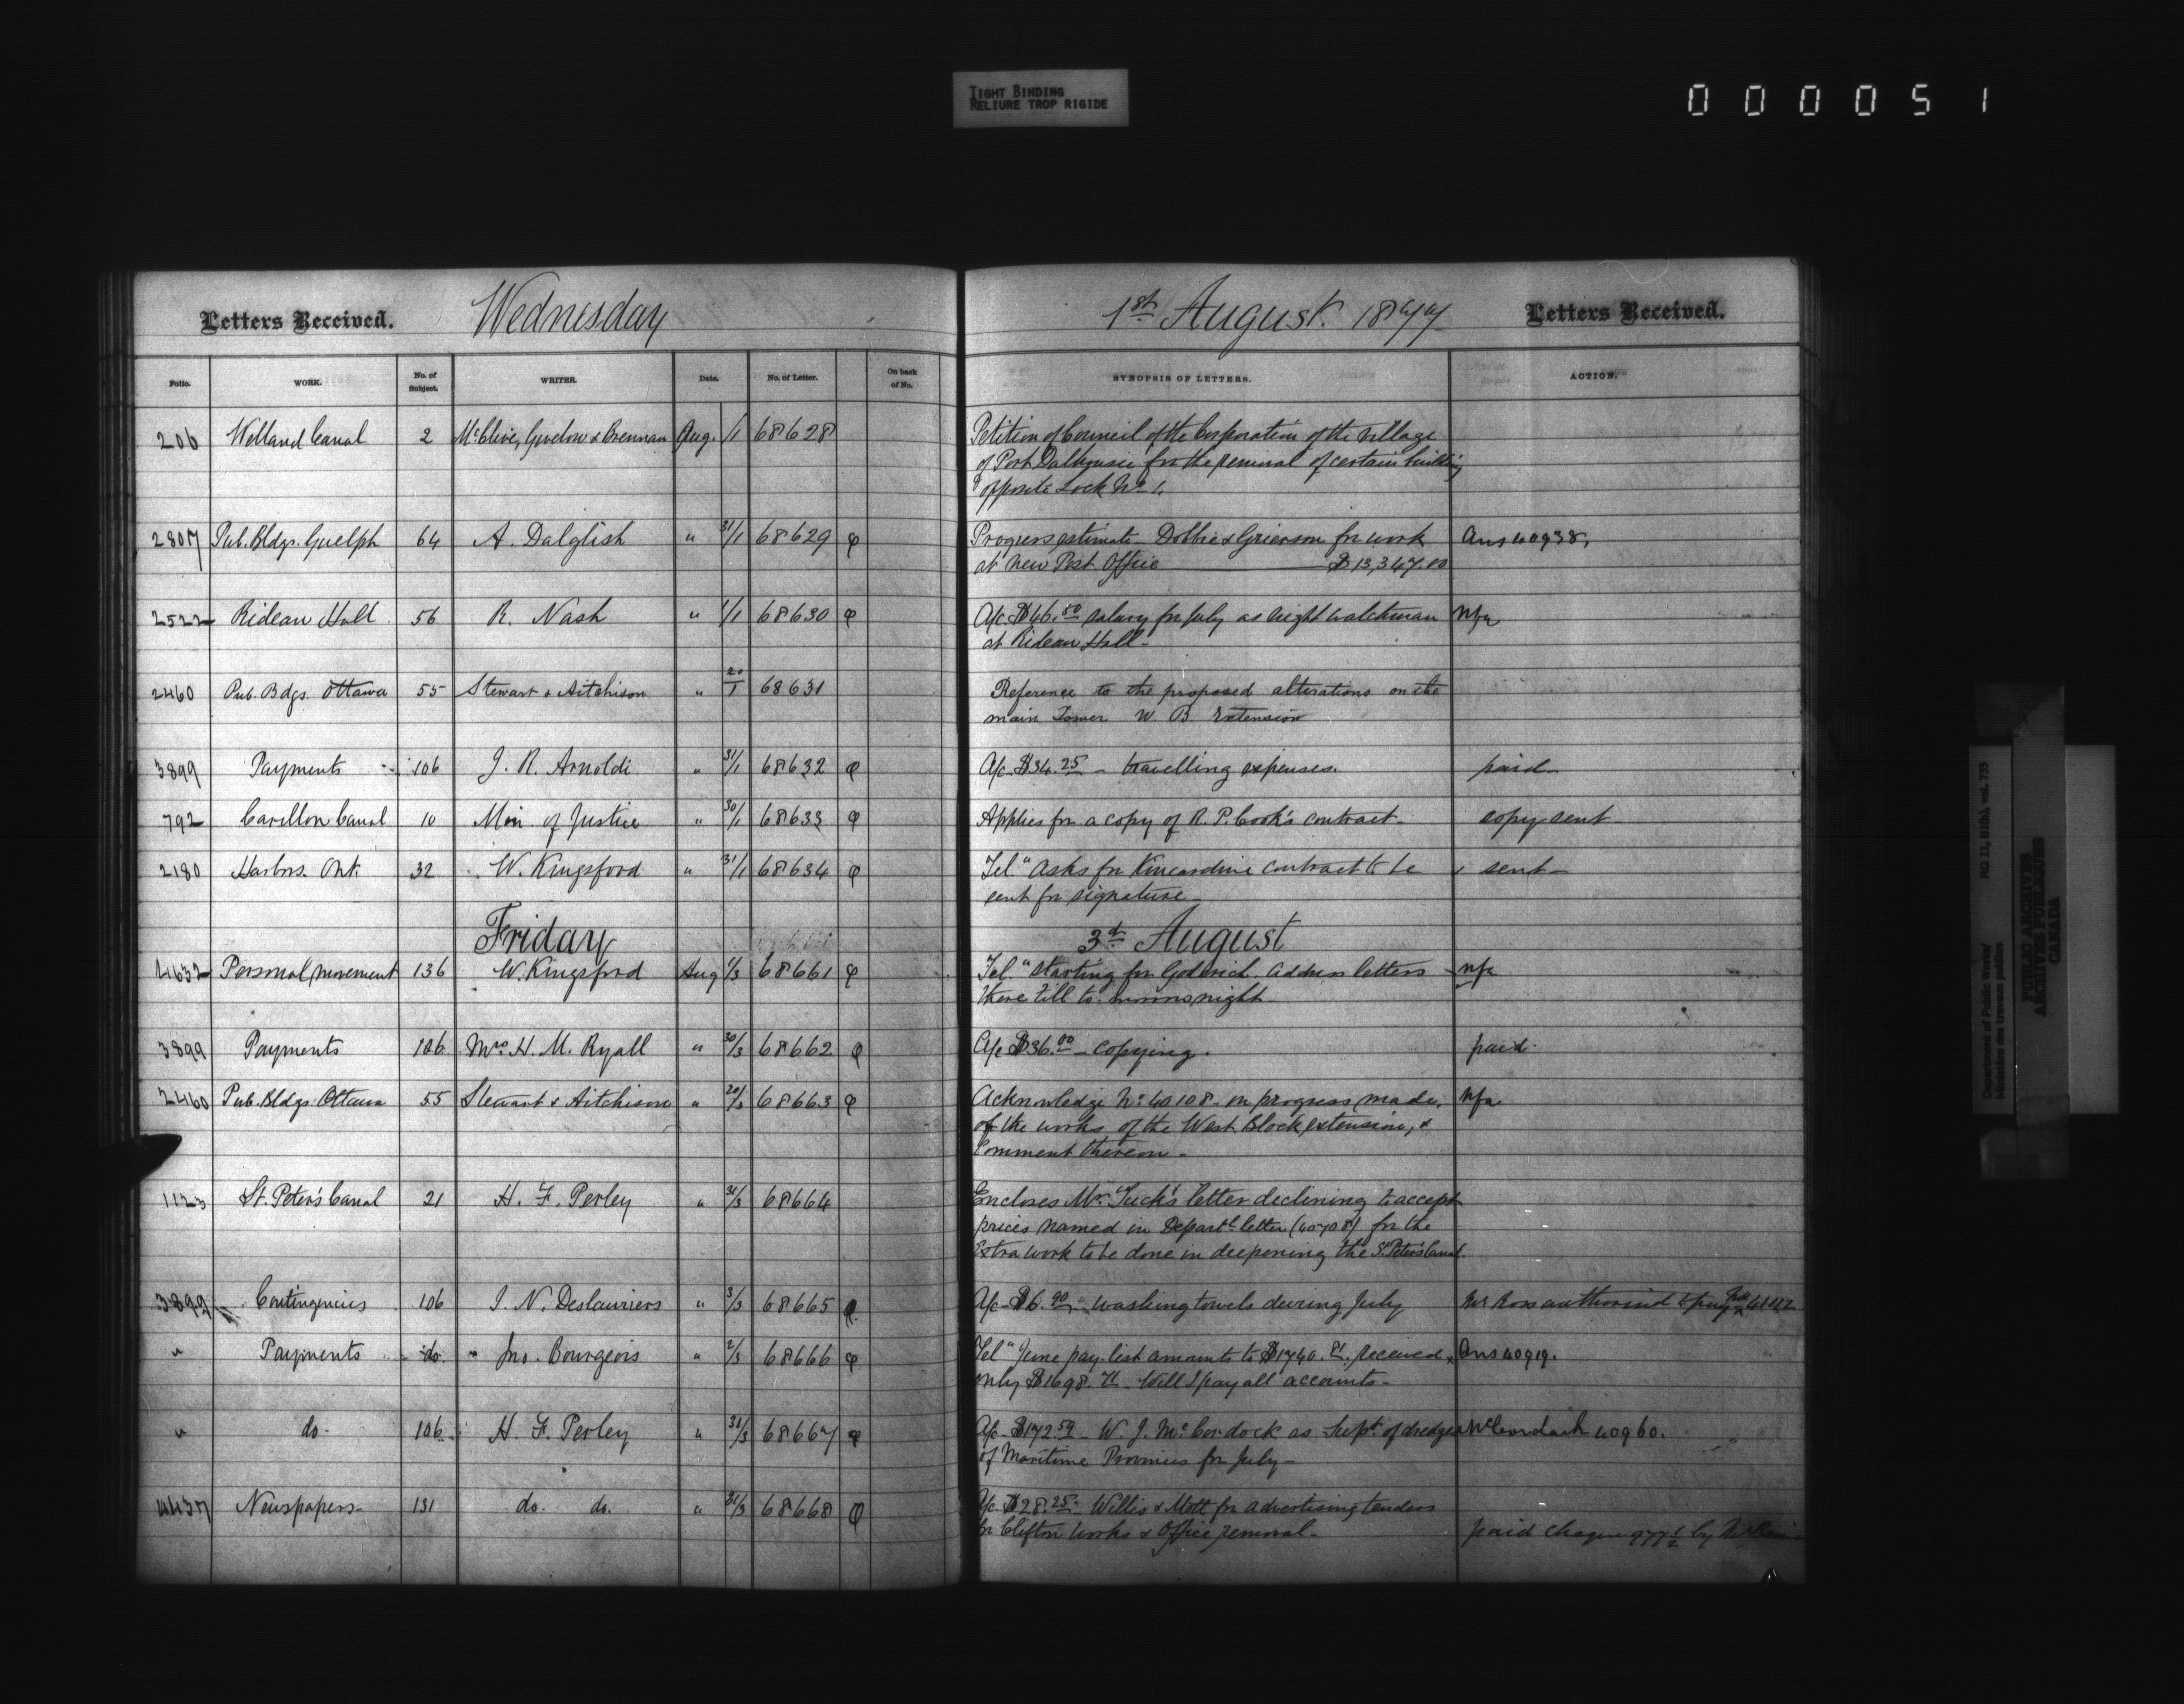 TIGHT BINDING
RELIURE TROP RIGIDE
000051
Letters Received. Wednesday 1st August. 1877 Letters Received.
Folio. WORK. No. of Subject. WRITER. Date. No. of Letter. On back of No. SYNOPSIS OF LETTERS. ACTION.
206 Welland Canal 2 & Brennan Aug. /1 68628 Petition of Council of the Corporation of the Village
of Port Dalhousie for the removal of certain building
opposite Lock No 1.
2807 Pub. Bldgs. Guelph 64 A. Dalglish " 31/1 68629 φ Progress estimate Dobbie & Grierson for work Ans 40938,
at new Post Office $13,347.00
2522 Rideau Hall 56 R. Nash " 1/1 68630 φ A/c $46.50 salary for July as night watchman Nfa
at Rideau Hall-
2460 Pub. Bdgs. Ottawa 55 Stewart & Aitchison " 20/1 68631 Reference to the proposed alterations on the
main Tower W. B Extension
3899 Payments 106 J. R. Arnoldi " 31/1 68632 φ A/c $34.25 - travelling expenses. paid
792 Carillon Canal 10 Min. of Justice " 30/1 68633 φ Applies for a copy of R. P. Cook's contract- copy sent
2180 Harbors. Ont. 32 W. Kingsford " 31/1 68634 φ Tel." Asks for Kincardine contract to be sent-
sent for signature-
Friday 3d August
4632 Personal movement 136 W. Kingsford Aug 1/3 68661 φ Tel." Starting for Goderich. Address letters nfa
there till to morrow night
3899 Payments 106 Mrs H. M. Ryall " 30/3 68662 φ A/c $36.00 - copying. paid.
2460 Pub. Bldgs. Ottawa 55 Stewart & Aitchison " 20/3 68663 φ Acknowledge No 40108 on progress made, Nfa
of the works of the West Block extension, &
comment thereon-
1123 St. Peter's Canal 21 H. F. Perley " 31/3 68664 Encloses Mr. Tuck's letter declining to accept
prices named in Departl. letter (40708) for the
Extra work to be done in deepening the St. Peter's Canal.
3899 Contingencies 106 J. N. Deslauriers " 3/3 68665 φ A/c $6.90 - washing towels during July Mr Ross authorised to pay
" Payments do. Jno. Bourgeois " 2/3 68666 φ Tel " June pay-list amounts to $1740. received, Ans 40919.
only $1698. Will I pay all accounts-
" do. 106 H. F. Perley " 31/3 68667 φ A/c $172.59 - W. J. McCordock as Supt. of dredges McCordock 40960.
of Maritime Provinces for July-
4437 Newspapers 131 do. do. " 31/3 68668 φ A/c $28.25. Willis & Mott for advertising tenders
for Clifton works & Office removal- paid cheque by
Department of Public Works/
Ministère des travaux publics
RG 11, B1(b), vol. 735
PUBLIC ARCHIVES
ARCHIVES PUBLIQUES
CANADA